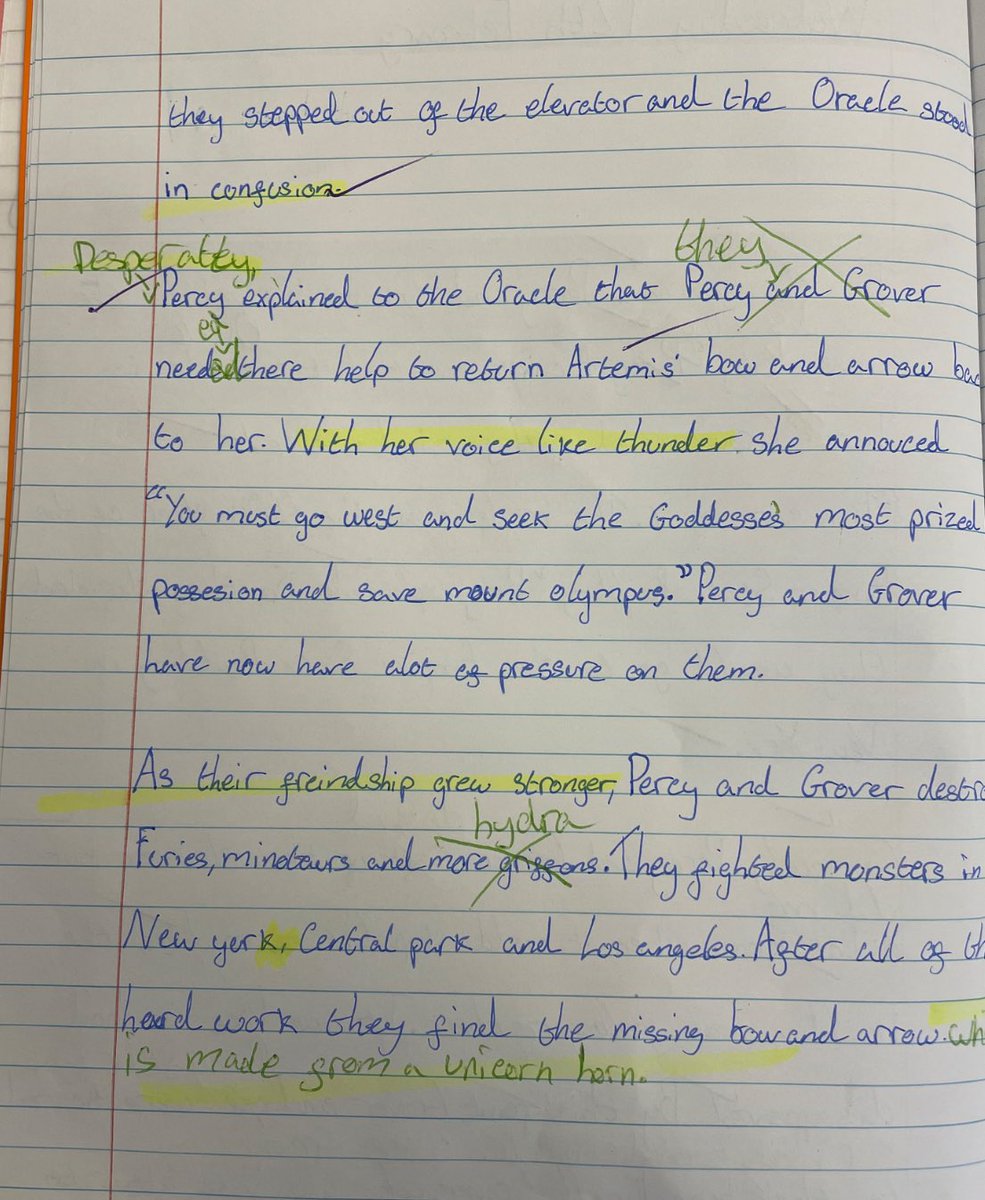 they stepped out of the elevator and the Oracle stood
in confusion.
Desperatly,
they
Percy explained to the Oracle that Percy and Grover
needed there help to return Artemis' bow and arrow
to her. With her voice like thunder she annouced
"You must go west and seek the Goddesses most prized
possesion and save mount olympus." Percy and Grover
have now have alot of pressure on them.
As their freindship grew stronger, Percy and Grover
hydra
Furies, minotaurs and more griffons. They fighted monsters in
New york, Central park and Los angeles. After all of
hard work they find the missing bow and arrow.
is made from a unicorn horn.